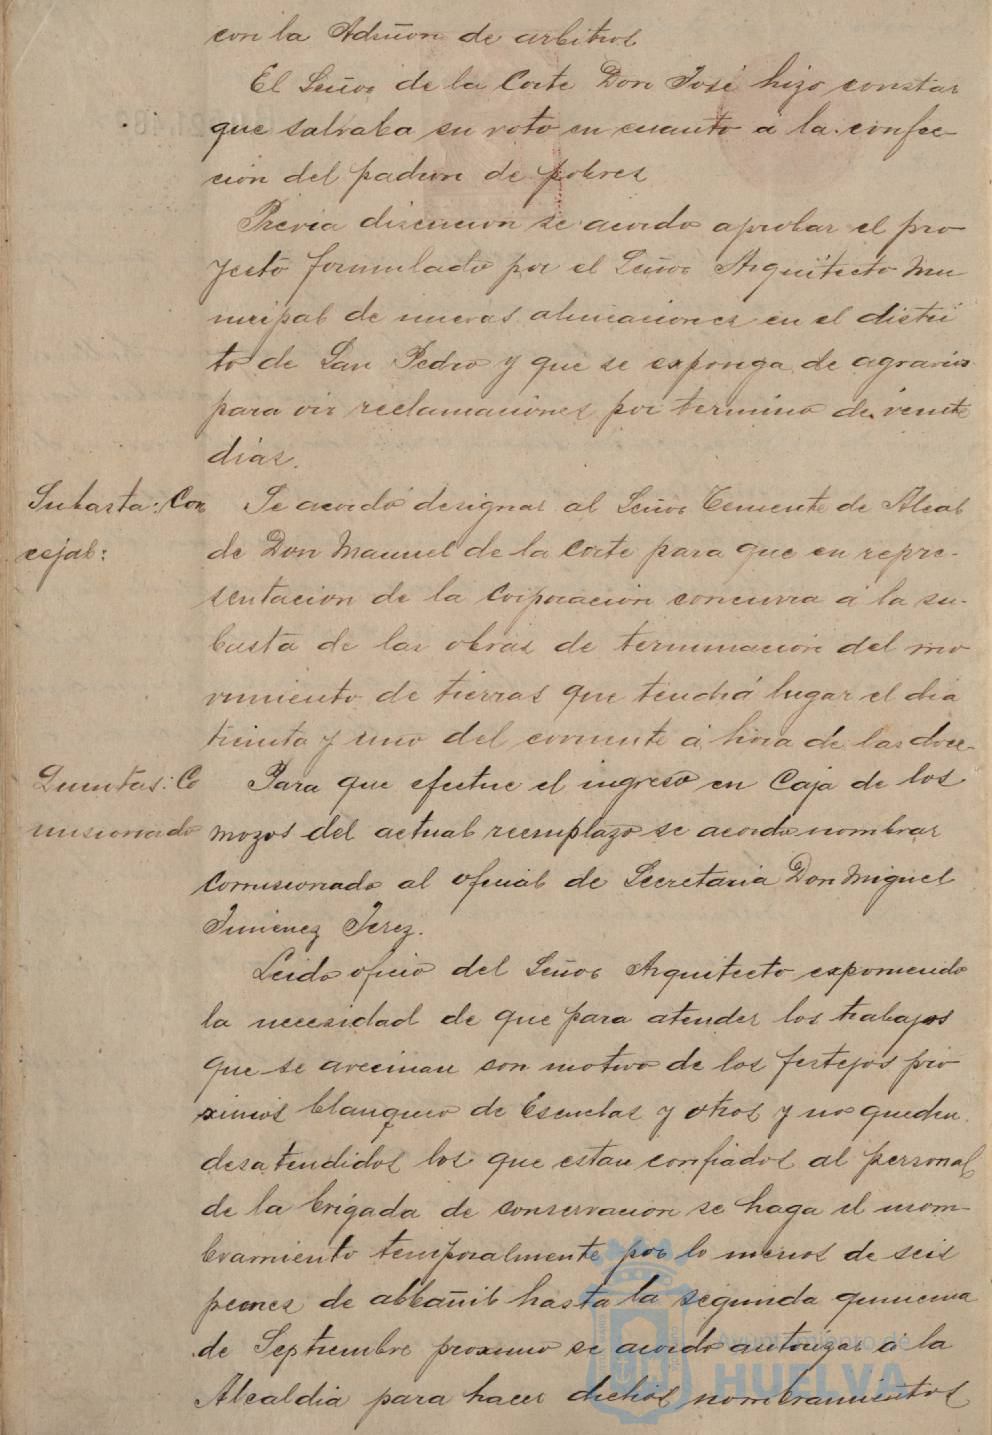 con la Admon de arbitros
El Señor de la Corte Don José hizo constar
que salvaba su voto en cuanto a la confec-
cion del padron de pobres
Previa discucion se acordo aprobar el pro
yecto formulado por el Señor Arquitecto Mu
nicipal de nuevas alineaciones en el distri
to de San Pedro y que se exponga de agravios
para oir reclamaciones por termino de veinte
dias.
Subasta: Con
cejal:
Se acordó designar al Señor Teniente de Alcal
de Don Manuel de la Corte para que en repre-
sentacion de la Corporacion concurra á la su-
basta de las obras de terminacion del mo
vimiento de tierras que tendrá lugar el dia
treinta y uno del corriente á hora de las doce-
Quintas: Co
misionado
Para que efectue el ingreso en Caja de los
mozos del actual reemplazo se acordo nombrar
Comisionado al oficial de Secretaria Don Miguel
Jimenez Jerez.
Leido oficio del Señor Arquitecto exponiendo
la necesidad de que para atender los trabajos
que se avecinan con motivo de los festejos pro
ximos blanqueo de Escuelas y otros y no queden
desatendidos los que estan confiados al personal
de la brigada de conservacion se haga el nom-
bramiento temporalmente por lo menos de seis
peones de albañil hasta la segunda quincena
de Septiembre proximo se acordo autorizar á la
Alcaldia para hacer dichos nombramientos
Ayuntamiento de
HUELVA